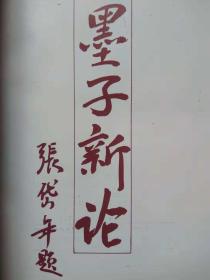 墨子新论
張岱年題